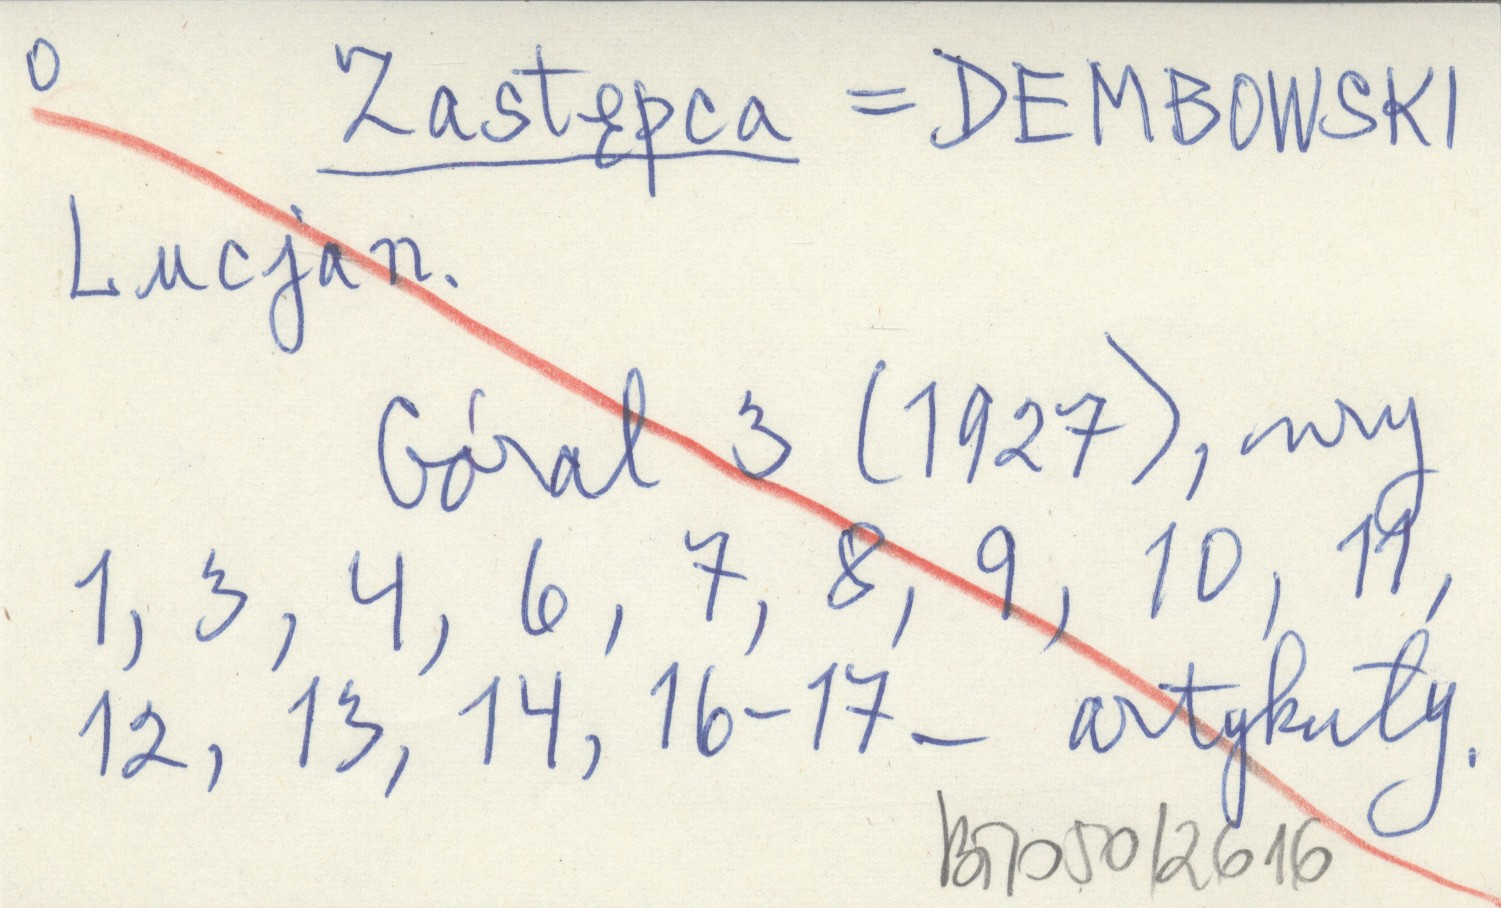 0
Zastępca = DEMBOWSKI
Lucjan.
Góral 3 (1927), nry
1, 3, 4, 6, 7, 8, 9, 10, 11,
12, 13, 14, 16-17 - artykuły.